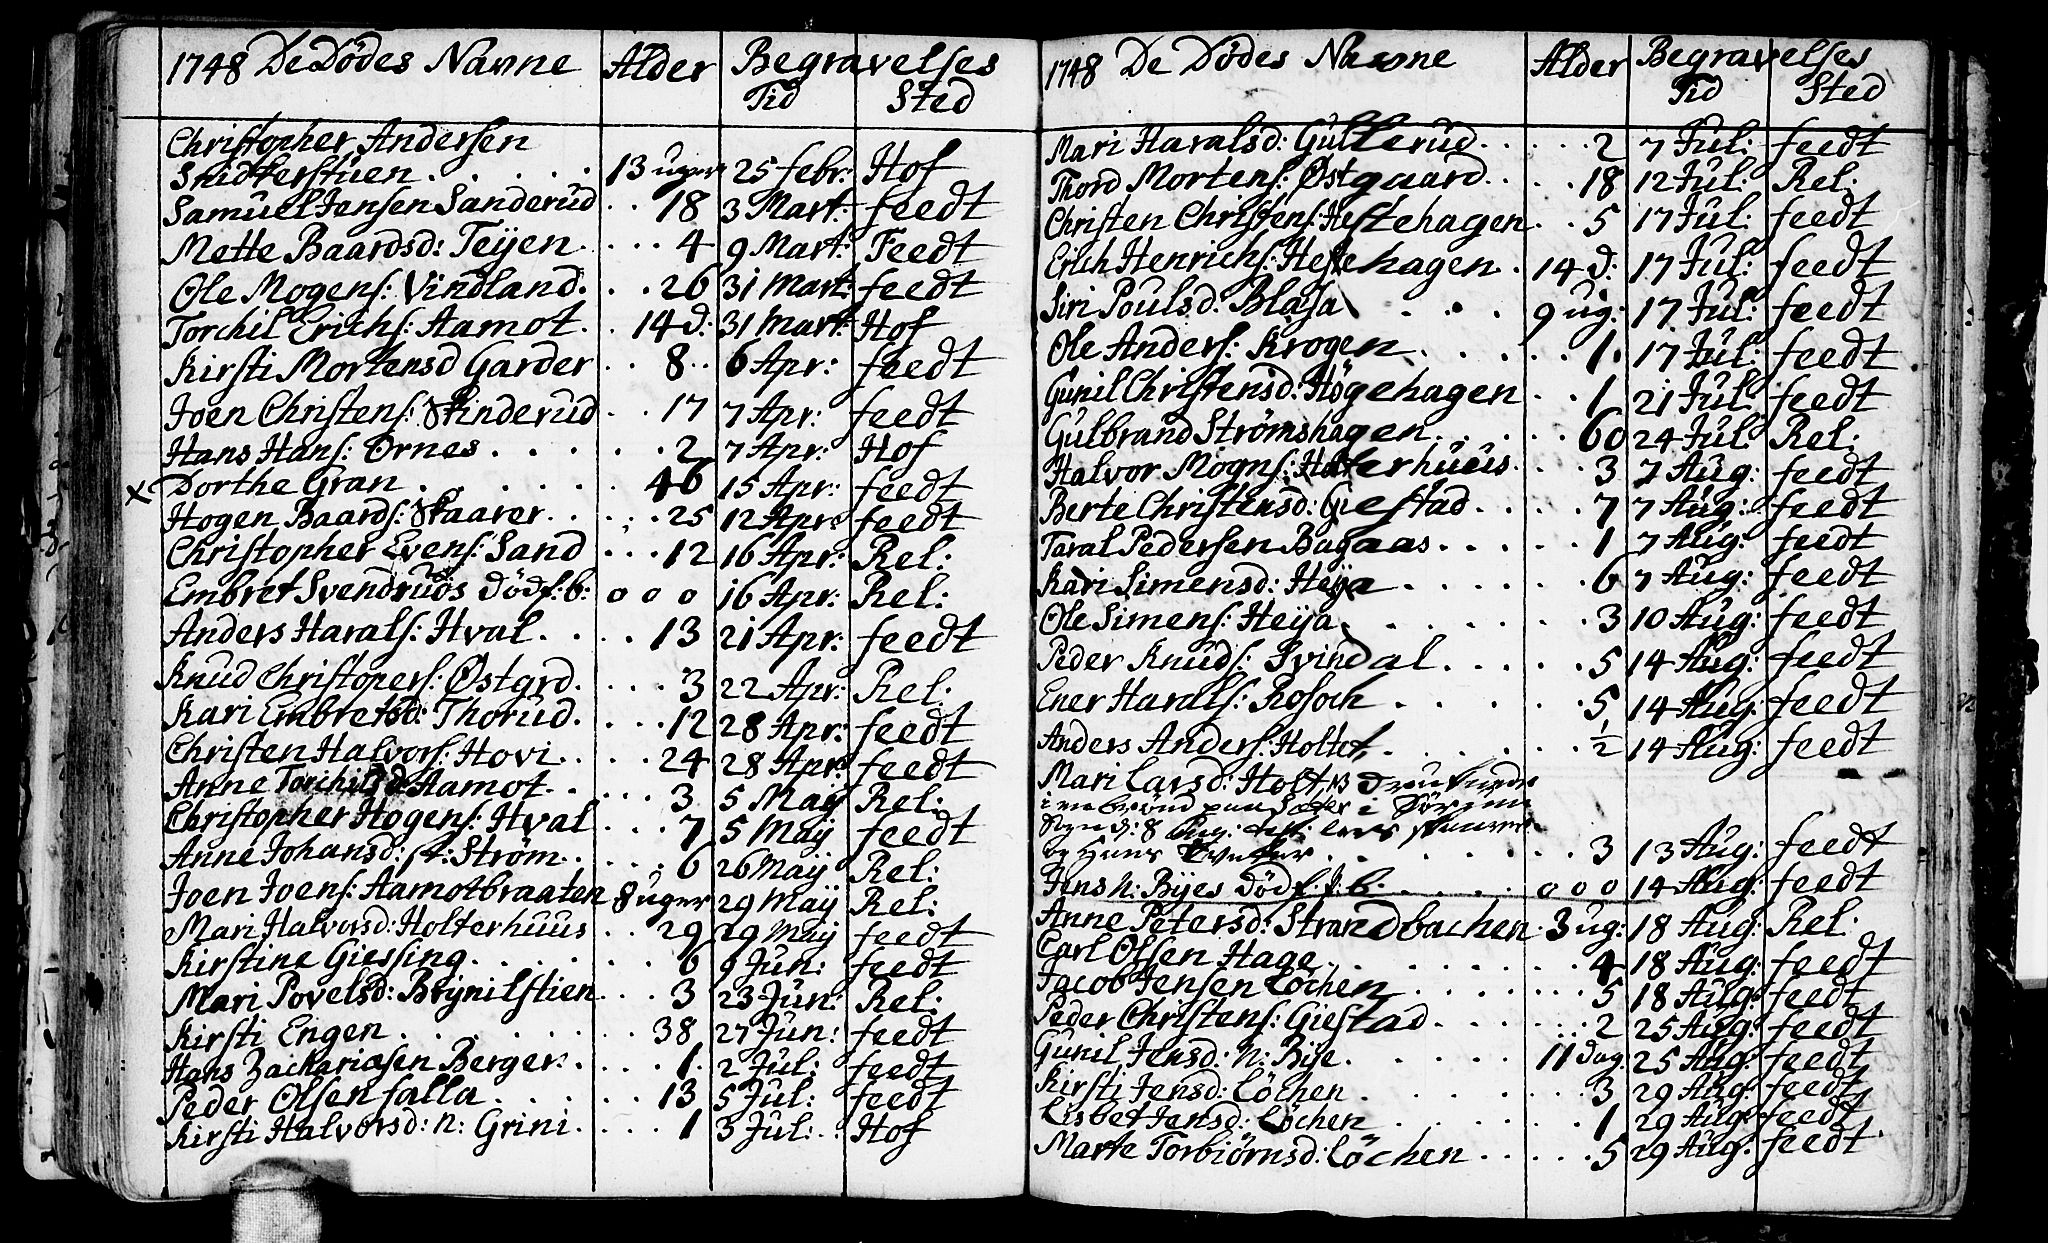 1748 De Dödes Navne Alder Begravelses
Tid Sted
Christopher Andersen
Snidkerstuen. . . . . . 13 uger 25 febr: Hof
Samuel Jensen Sanderud . . 18 3 Mart: feedt
Mette Baardsd: Teÿen . . . . 4 9 Mart: Feedt
Ole Mogens: Vindland. . . 26 31 Mart: feedt
Torchil Erichs: Aamot. . 14 d: 31 Mart: Hof
Kirsti Mortensd Garder . . 8 . . 6 Apr: feedt
Joen Christens: Skinderud . . 17 7 Apr: feedt
Hans Hans: Ornes . . . . . . 2 7 Apr: Hof
x Dorthe Gran . . . . . . 46 15 Apr: feedt
Hogen Baards: Skaarer. . . . . 25 12 Apr: feedt
Christopher Evens: Sand . . . 12 16 Apr: Rel:
Embret Svendruds dödf: b: o o o 16 Apr: Rel:
Anders Harals: Hval. . . . . 13 21 Apr: feedt
Knud Christopers: Østgrd. . . . . 3 22 Apr: Rel:
Kari Embretsd: Thorud. . . . . 12 28 Apr: feedt
Christen Halvors: Hovi. . . . . 24 28 Apr: feedt
Anne Torchilsd: Aamot. . . . . 3 5 Maÿ Rel:
Christopher Hogens: Hval . . . 7 5 Maÿ feedt
Anne Johansd: st: Strøm. . . . . 6 26 Maÿ Rel:
Joen Joens: Aamotbraaten 8 uger 29 Maÿ Rel:
Mari Halvorsd: Holterhuus . . 29 29 Maÿ feedt
Kirstine Giessing. . . . . . . 6 9 Jun: feedt
Mari Povelsd: Brÿnilstien . . . 3 23 Jun: Rel:
Kirsti Engen . . . . . . . . 38 27 Jun: feedt
Hans Zachariasen Berger. . . . . 1. 2 Jul: feedt
Peder Olsen falla . . . . . . 13 5 Jul: feedt
Kirsti Halvorsd: n: Grini. . . . . 1 3 Jul: . : Hof
1748 De Dödes Navne Alder Begravelses
Tid Sted
Mari Haralsd: Gulterud. . . . . . 2 7 Jul: feedt
Thord Mortens: Østgaard. . . . 18 12 Jul: Rel:
Christen Christens: Hestehagen. . . 5 17 Jul: feedt
Erich Henrichs: Hestehagen. . 14 d: 17 Jul: feedt
Siri Poulsd: Blasa . . . 9 ug: 17 Jul: feedt
Ole Anders: Krogen. . . . . . 1. 17 Jul: feedt
Gunil Christensd: Högehagen . . 1 21 Jul feedt
Gulbrand Strømshagen. . . . . 60 24 Jul Rel:
Halvor Mogns: Holterhuus. . . . 3 7 Aug: feedt
Berte Christensd: Giestad. . . . . 7 7 Aug: feedt
Taral Pedersen Bagaas. . . . . . 1 7 Aug: feedt
Kari Simensd: Heÿa . . . . . . 6 7 Aug: feedt
Ole Simens: Heÿa. . . . . . . 3 10 Aug: feedt
Peder Knuds: Svindal. . . . . 5 14 Aug: feedt
Ener Harals: Rosoch . . . . . . 5 14 Aug: feedt
Anders Anders: Holtet. . . . . . . ½ 14 Aug: feedt
Mari Larsd: Holt,
i en brönd paa Sæter i
d: 8 Aug:
og Hans . . . . . . . . 3 13 Aug: feedt
Jens n: Bÿes dödf. f: b. . . . . o o o 14 Aug: feedt
Anne Petersd: Strandbachen. 3 ug: 18 Aug: Rel:
Carl Olsen Hage. . . . . . . . 4 18 Aug: feedt
Jacob Jensen Löchen. . . . . . . 5 18 Aug: feedt
Peder Christens: Giestad. . . . . . . 2 25 Aug: feedt
Gunil Jensd: n: Bÿe. . . . . . 11 dag. 25 Aug: feedt
Kirsti Jensd: Löchen . . . . . . . 3 29 Aug: feedt
Lisbet Jensd: Löchen . . . . . . . 1 29 Aug: feedt
Marte Torbiörnsd: Löchen . . . . . 5 29 Aug. feedt